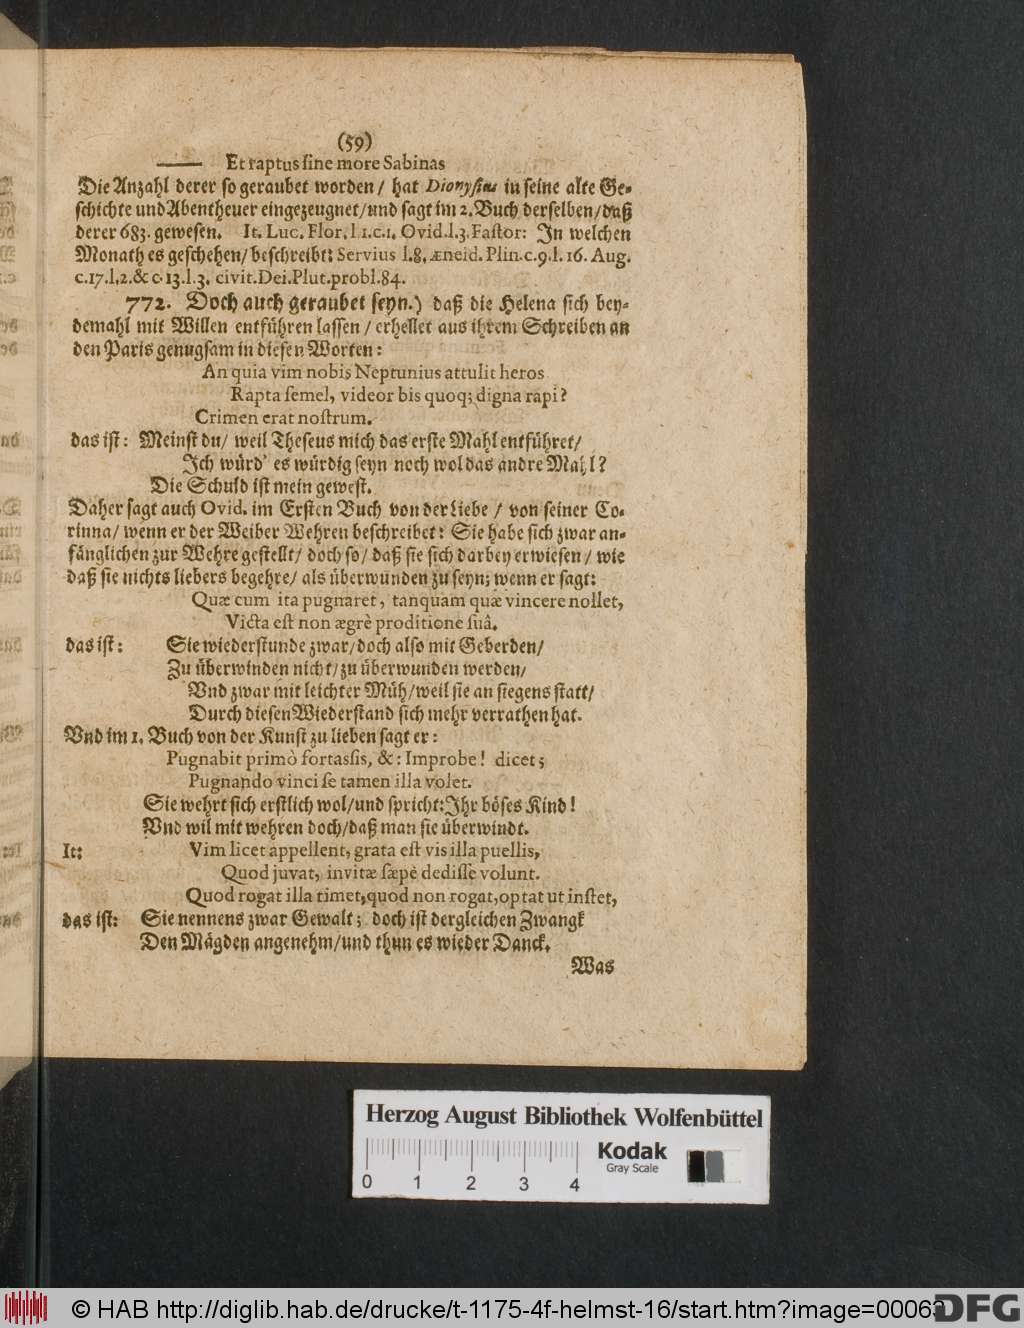 (59)
—— Et raptus sine more Sabinas
Die Anzahl derer so geraubet worden / hat Dionysius in seine alte Ge-
schichte und Abentheuer eingezeugnet / und sagt im 2. Buch derselben / daß
derer 683. gewesen. It. Luc. Flor. l 1. c. 1. Ovid. l. 3. Fastor: In welchen
Monath es geschehen / beschreibt: Servius l. 8. æneid. Plin. c. 9. l. 16. Aug.
c. 17. l. 2. & c. 13. l. 3. civit. Dei. Plut. probl. 84.
772. Doch auch geraubet seyn.) daß die Helena sich bey-
demahl mit Willen entführen lassen / erhellet aus ihrem Schreiben an
den Paris genugsam in diesen Worten:
An quia vim nobis Neptunius attulit heros
Rapta semel, videor bis quoq; digna rapi?
Crimen erat nostrum.
das ist: Meinst du / weil Theseus mich das erste Mahl entführet /
Ich würd' es würdig seyn noch wol das andre Mahl?
Die Schuld ist mein gewest.
Daher sagt auch Ovid. im Ersten Buch von der Liebe / von seiner Co-
rinna / wenn er der Weiber Wehren beschreibet: Sie habe sich zwar an-
fänglichen zur Wehre gestellt / doch so / daß sie sich darbey erwiesen / wie
daß sie nichts liebers begehre / als überwunden zu seyn; wenn er sagt:
Quæ cum ita pugnaret, tanquam quæ vincere nollet,
Victa est non ægrè proditione suâ.
das ist: Sie wiederstunde zwar / doch also mit Geberden /
Zu überwinden nicht / zu überwunden werden /
Vnd zwar mit leichter Müh / weil sie an siegens statt /
Durch diesen Wiederstand sich mehr verrathen hat.
Vnd im 1. Buch von der Kunst zu lieben sagt er:
Pugnabit primò fortassis, &: Improbe! dicet;
Pugnando vinci se tamen illa volet.
Sie wehrt sich erstlich wol / und spricht: Ihr böses Kind!
Vnd wil mit wehren doch / daß man sie überwindt.
It: Vim licet appellent, grata est vis illa puellis,
Quod juvat, invitæ sæpè dedisse volunt.
Quod rogat illa timet, quod non rogat, optat ut instet,
das ist: Sie nennens zwar Gewalt; doch ist dergleichen Zwangk
Den Mägden angenehm / und thun es wieder Danck.
Was
Herzog August Bibliothek Wolfenbüttel
Kodak
Gray Scale
0 1 2 3 4
© HAB http://diglib.hab.de/drucke/t-1175-4f-helmst-16/start.htm?image=00063
DFG